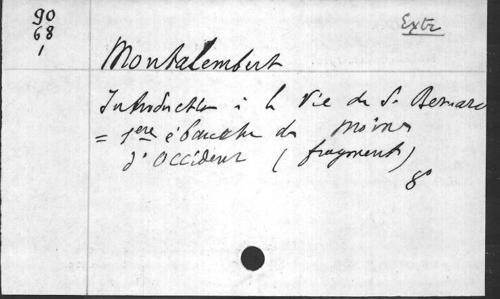 90
68
1
Extr
Montalembert
Introduction à la Vie de St Bernard
= 1ere ébauche des Moines
d'Occident (fragment)
8°